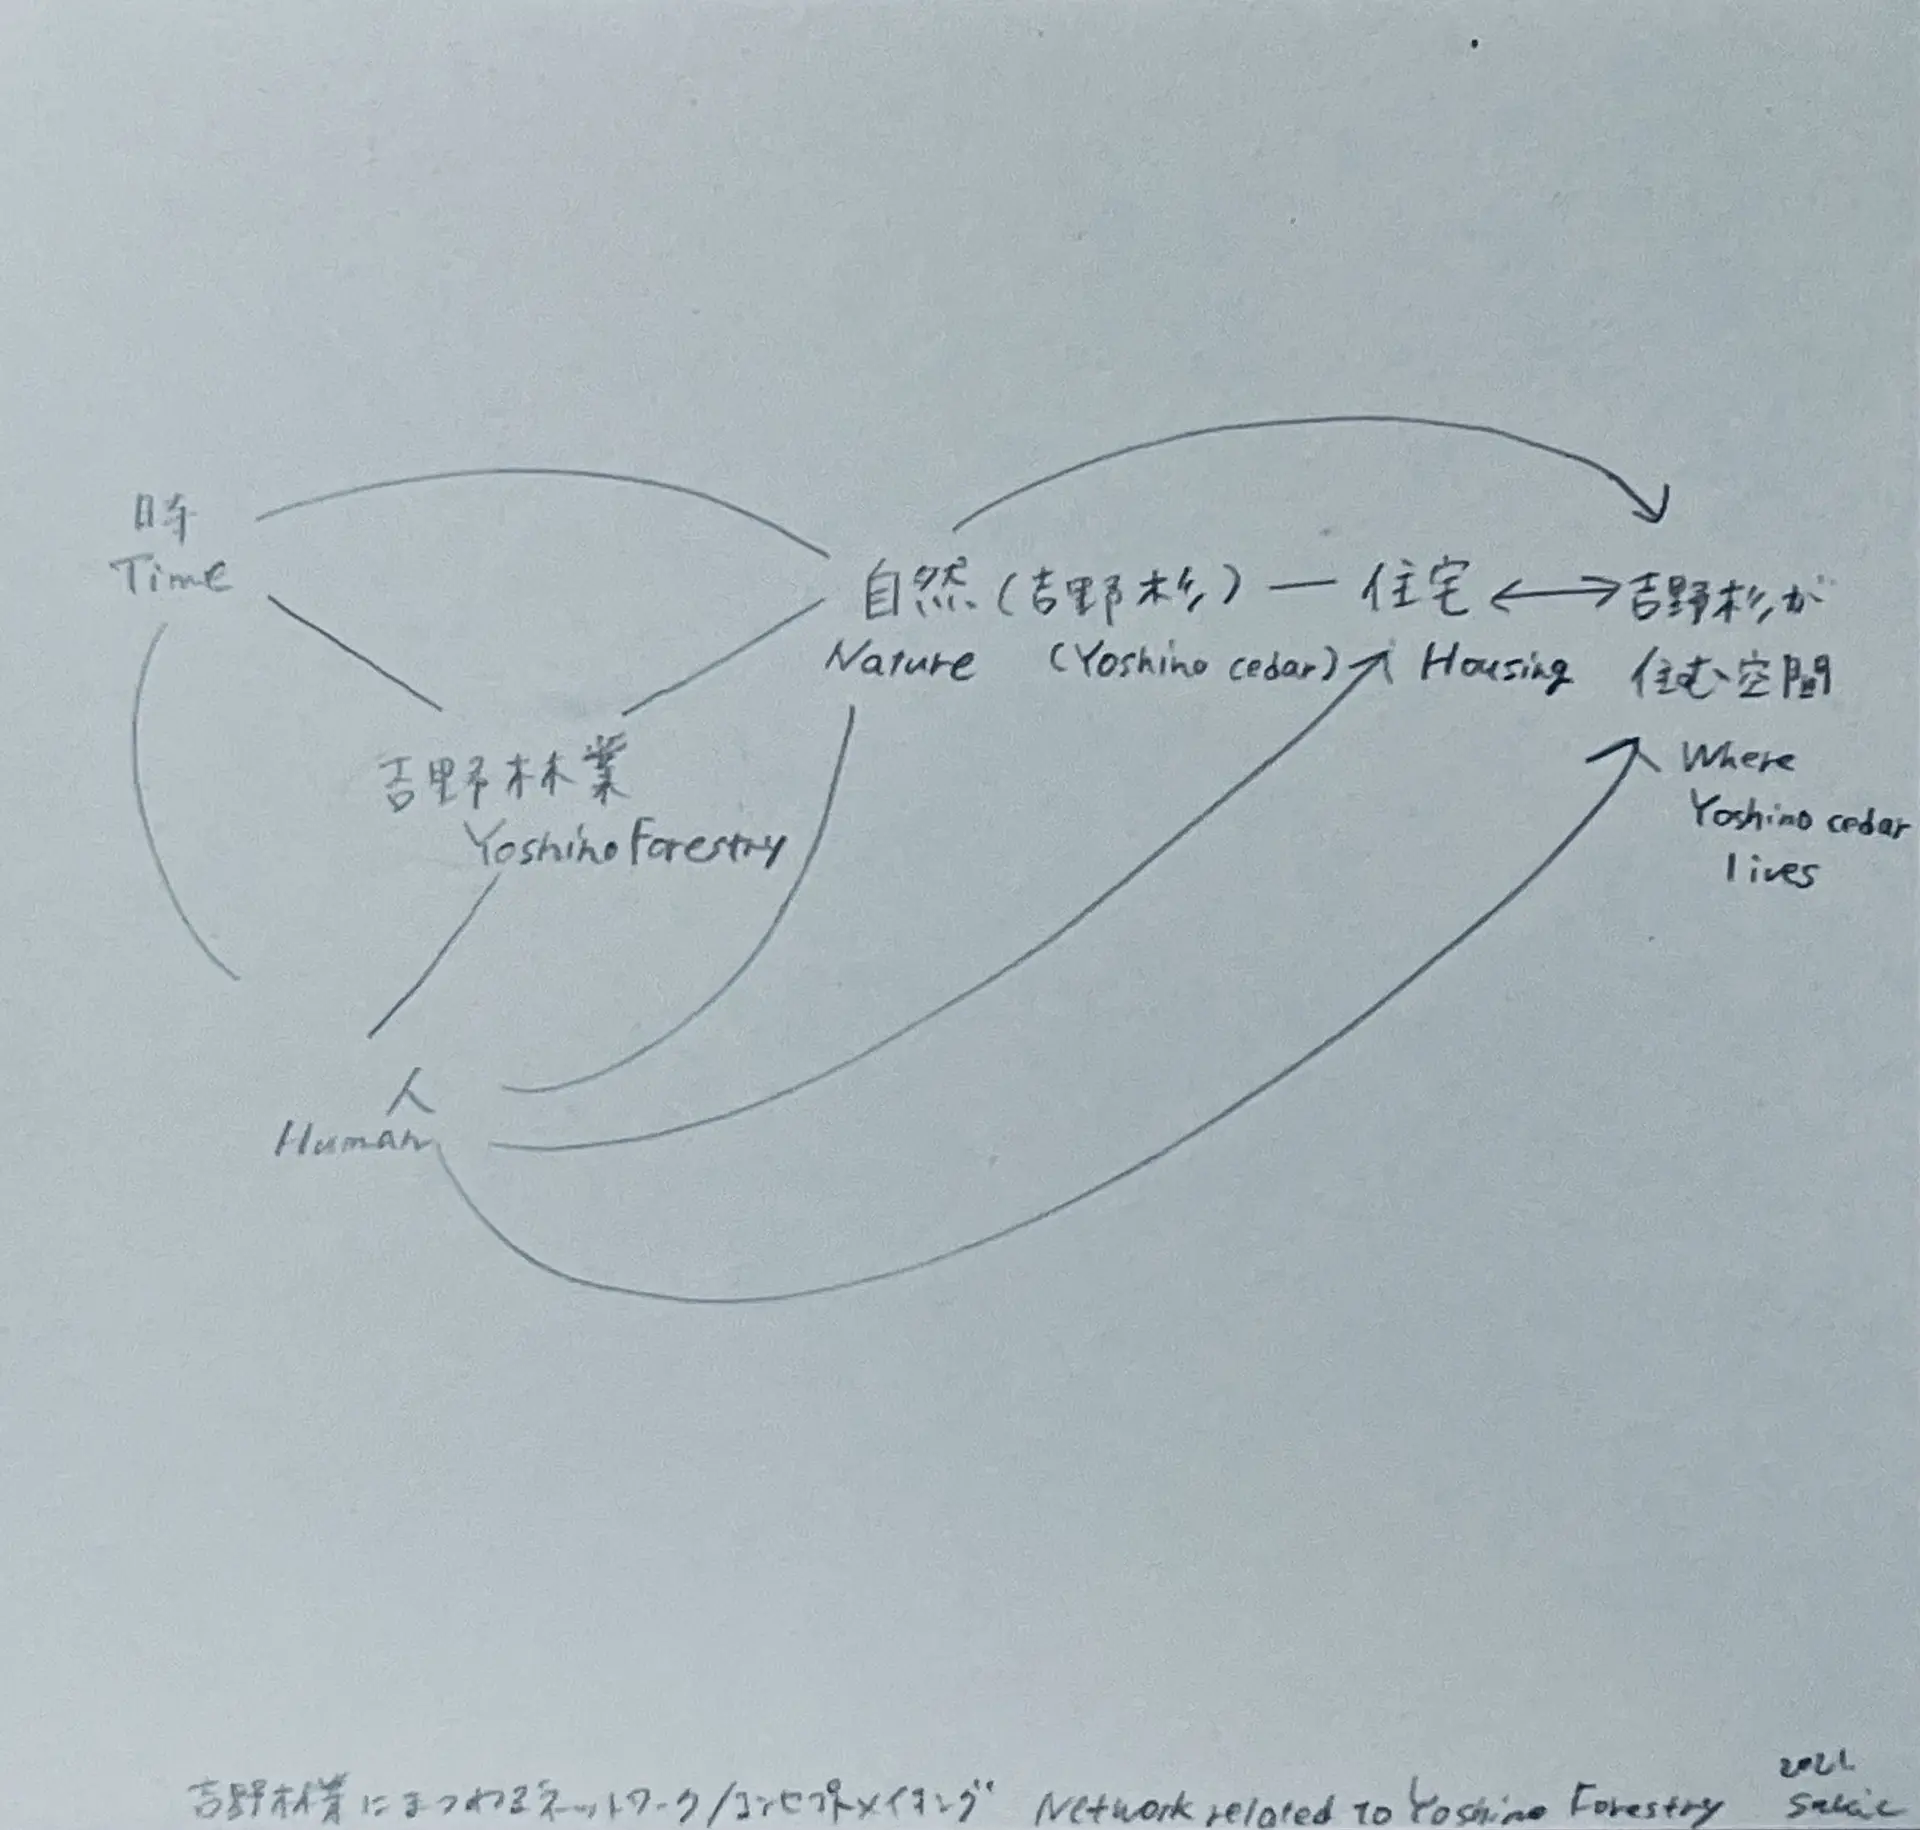 時
Time
自然(吉野杉) — 住宅 ⟷ 吉野杉が
Nature (Yoshino cedar) Housing 住む空間
Where
Yoshino cedar
lives
吉野林業
Yoshino Forestry
人
Human
吉野林業にまつわるネットワーク/コンセプトメイキング Network related to Yoshino Forestry